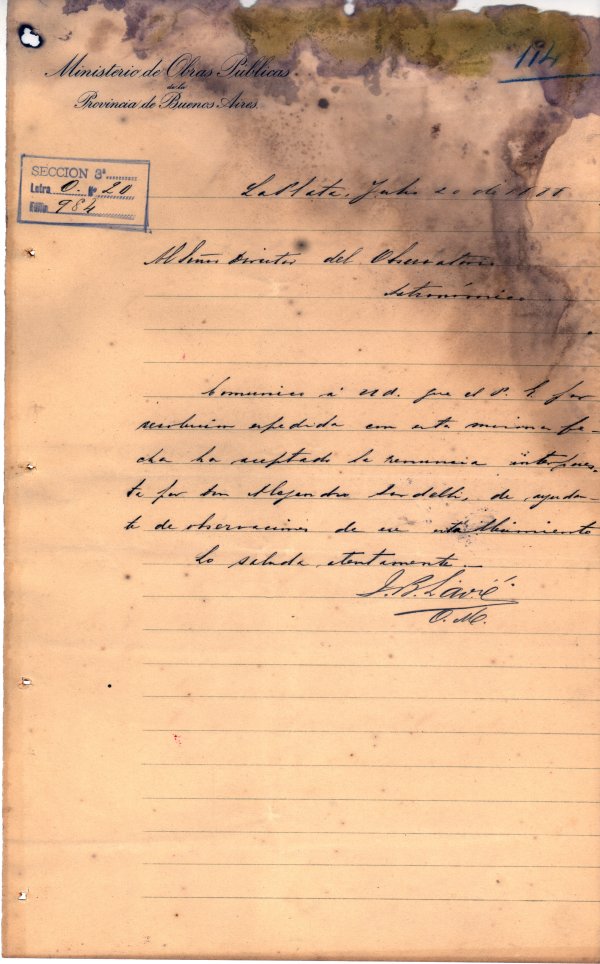 194
Ministerio de Obras Públicas
de la
Provincia de Buenos Aires.
SECCION 3ª
Letra O. Nº 20
Folio 984
La Plata, Julio 20 de
Al Señor Director del Observatorio
Astronómico
Comunico á Ud. que el P. E. por
resolución espedida con esta misma fe-
cha ha aceptado la renuncia interpues-
ta por Don Alejandro de ayudan-
te de observaciones de ese establecimiento
Lo saluda atentamente.
J. B. Lavié
O. M.